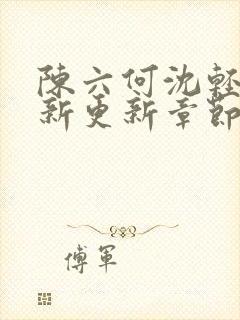 陳六何沈輕
新更新章節
傅軍